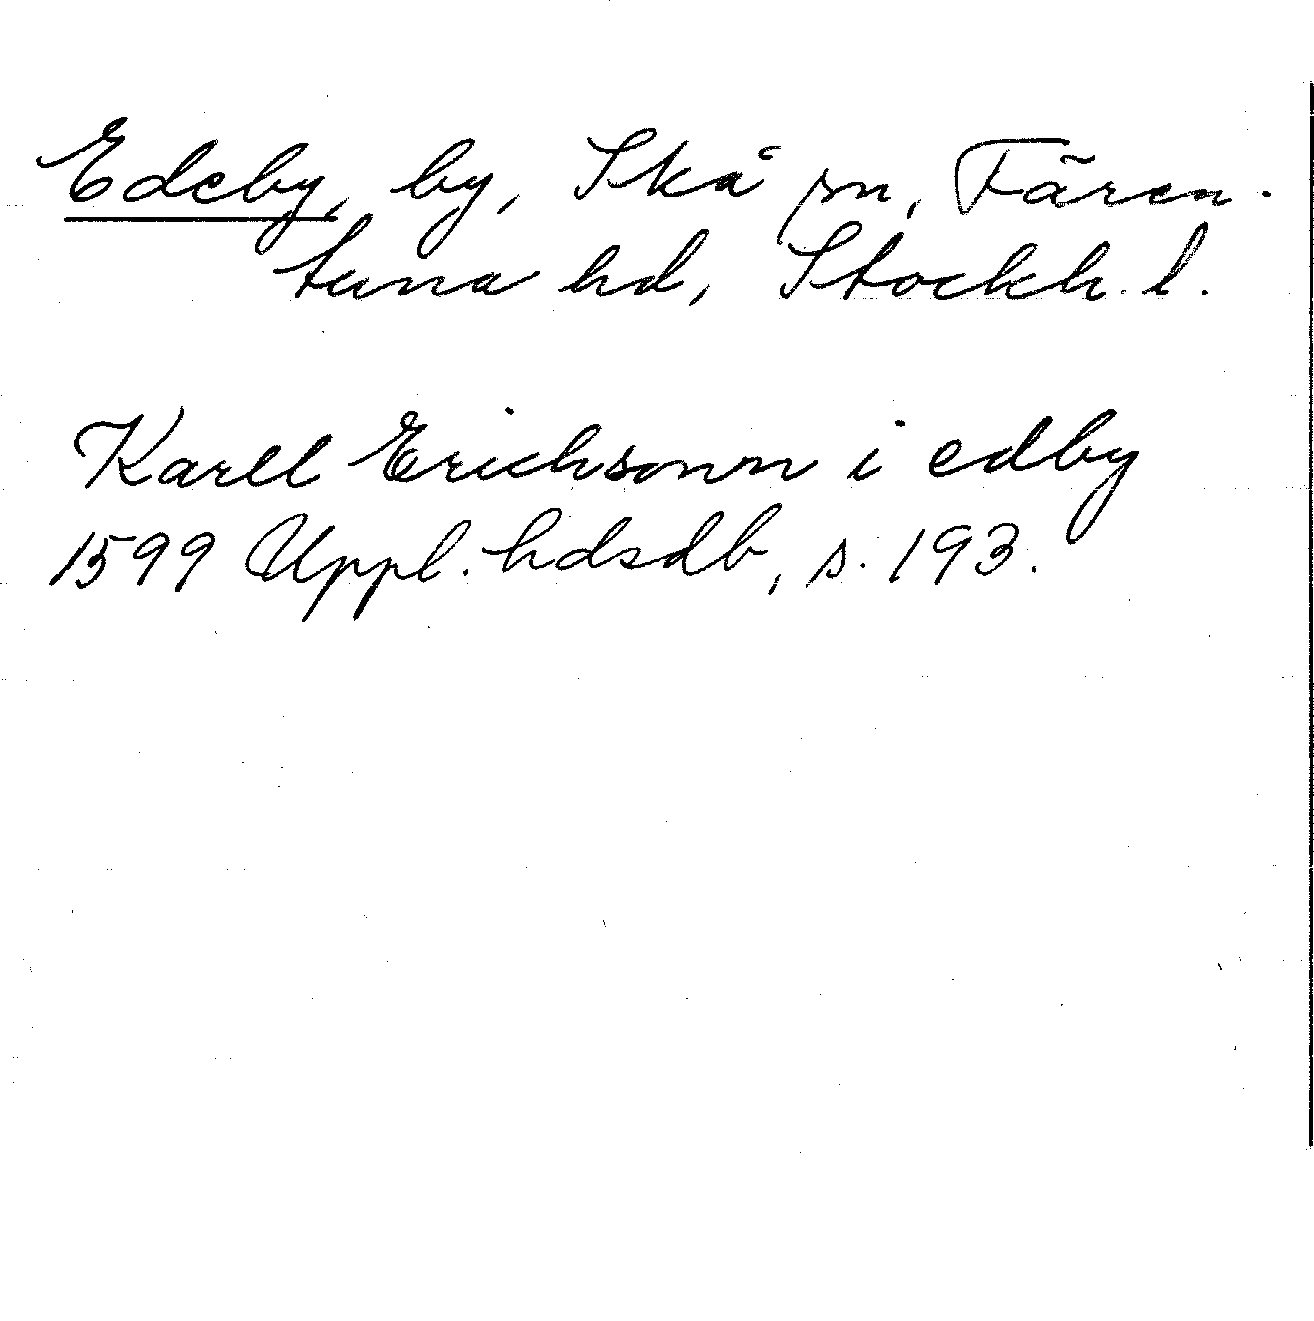 Edeby, by, Skå sn, Fären-
tuna hd, Stockh. l.
Karll Erichsonn i edby
1599 Uppl. hdsdb, s. 193.